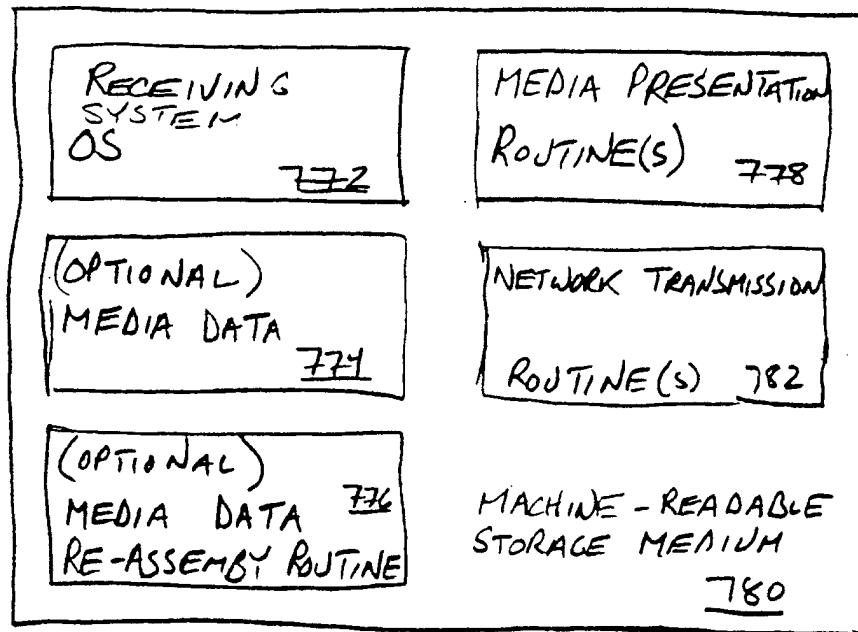 RECEIVING
SYSTEM
OS
772
(OPTIONAL)
MEDIA DATA
774
(OPTIONAL)
776
MEDIA DATA
RE-ASSEMBY ROUTINE
MEDIA PRESENTATION
ROUTINE(S) 778
NETWORK TRANSMISSION
ROUTINE(S) 782
MACHINE-READABLE
STORAGE MEDIUM
780